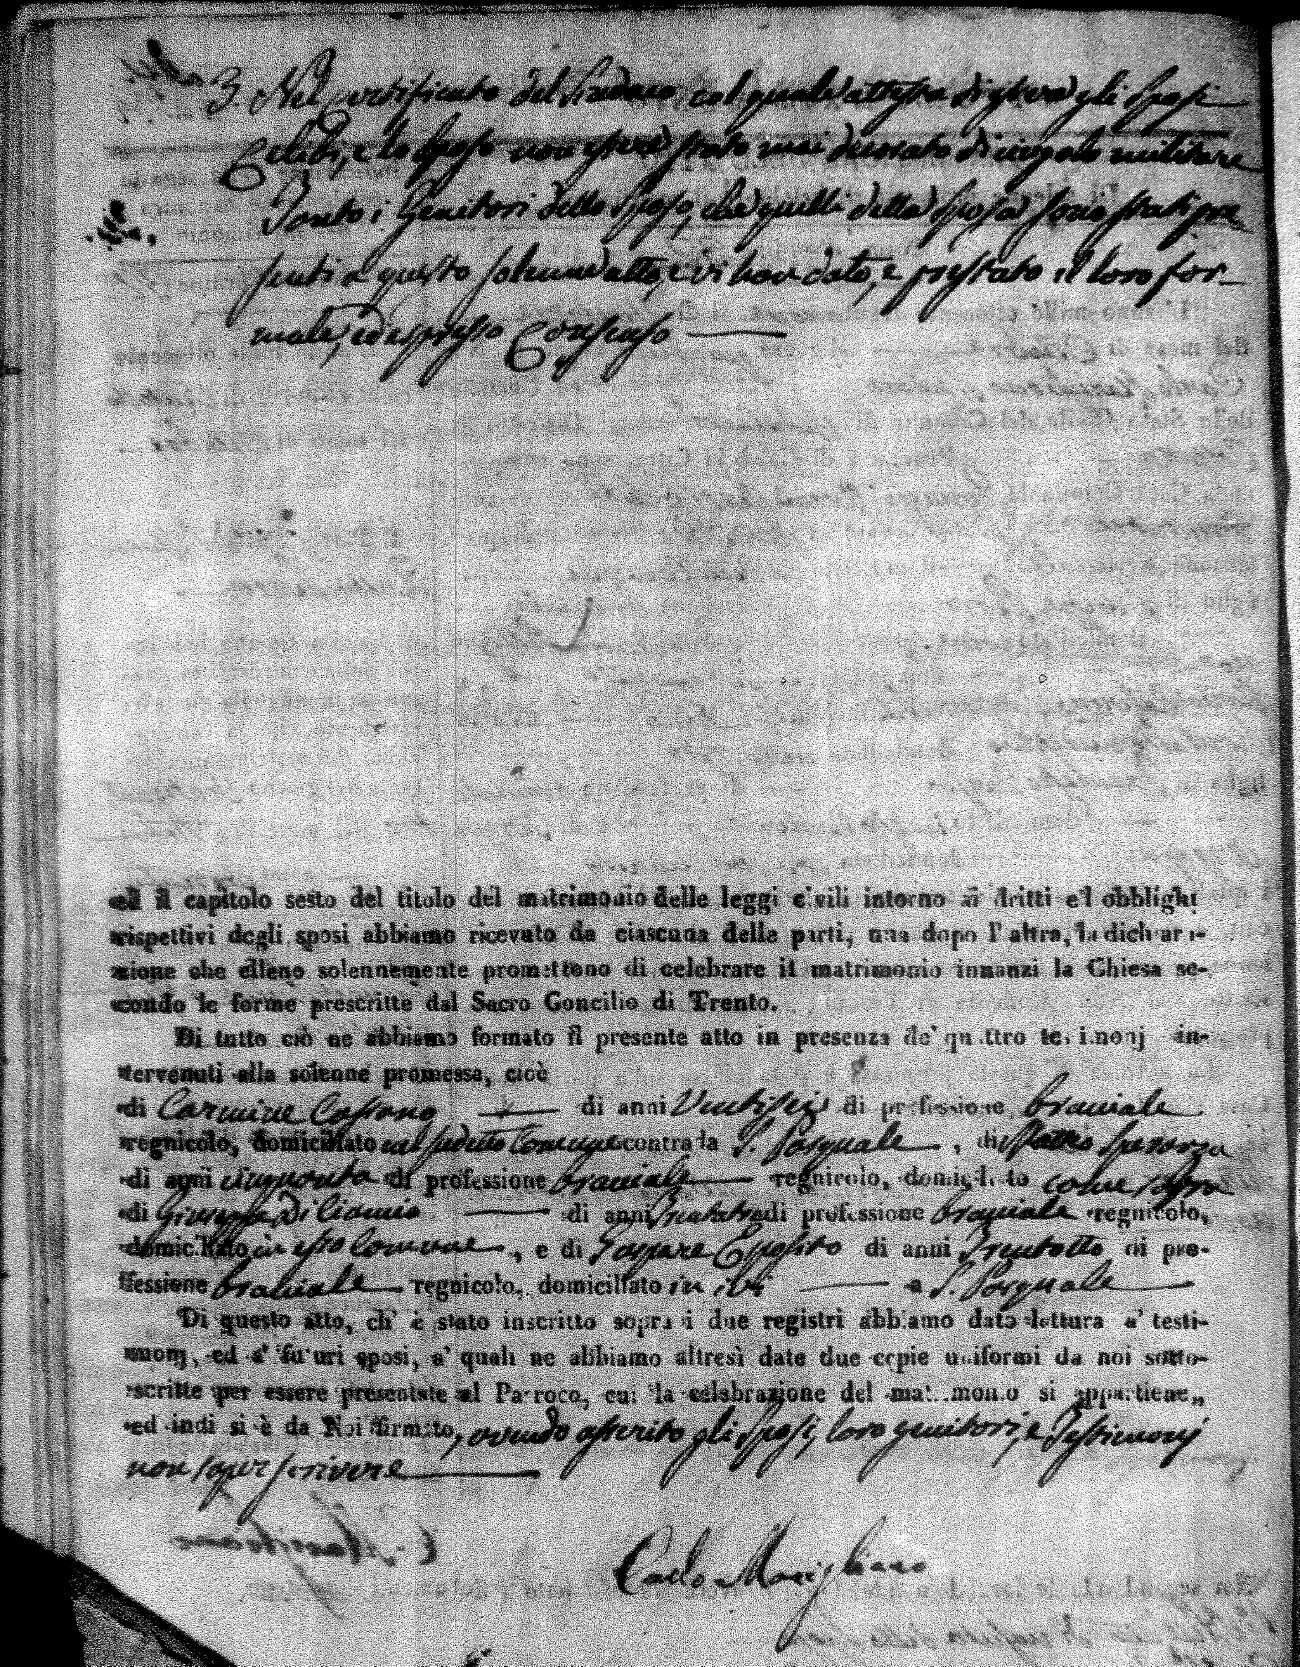 3 Nel certificato del Sindaco col quale attesta di essere gli Sposi
Celibi, e lo Sposo non essere stato mai dussato di congedo militare
Tanto i Genitori dello Sposo, che quelli della Sposa sono stati pre
senti a questo solenne atto, e vi han dato, e prestato il loro for-
male, ed espresso Consenso
ed il capitolo sesto del titolo del matrimonio delle leggi civili intorno ai dritti ed obblighi
rispettivi degli sposi abbiamo ricevuto da ciascuna delle parti, una dopo l'altra, la dichiara-
zione che elleno solennemente promettono di celebrare il matrimonio innanzi la Chiesa se-
condo le forme prescritte dal Sacro Concilio di Trento.
Di tutto ciò ne abbiamo formato il presente atto in presenza de' quattro testimonj in-
tervenuti alla solenne promessa, cioè
di Carmine Cassano di anni Ventisei di professione bracciale
regnicolo, domiciliato nel suddetto Comune contrada S. Pasquale, di Speranza
di anni cinquanta di professione bracciale regnicolo, domiciliato come sopra
di Giuseppe di anni Trentatre di professione bracciale regnicolo,
domiciliato in esso Comune, e di Gaspare Esposito di anni Trentotto di pro-
fessione bracciale regnicolo, domiciliato in ivi a S. Pasquale
Di questo atto, ch' è stato inscritto sopra i due registri abbiamo dato lettura a' testi-
monj, ed a' futuri sposi, a' quali ne abbiamo altresì date due copie uniformi da noi sotto-
scritte per essere presentate al Parroco, cui la celebrazione del matrimonio si appartiene,
ed indi si è da Noi firmato, avendo asserito gli Sposi, loro genitori, e Testimonj
non saper scrivere
Carlo Marigliano